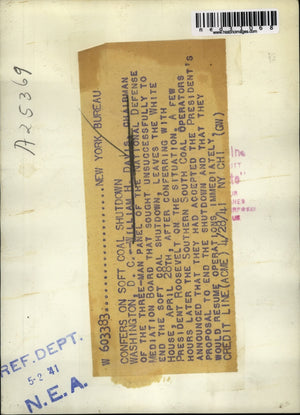 A25369
W 603383.........NEW YORK BUREAU
CONFERS ON SOFT COAL SHUTDOWN
WASHINGTON, D.C.--WILLIAM H. DAVIS, CHAIRMAN
OF THE THREE-MAN PANEL OF THE NATIONAL DEFENSE
MEDIATION BOARD THAT SOUGHT UNSUCCESSFULLY TO
END THE SOFT COAL SHUTDOWN, LEAVES THE WHITE
HOUSE, APRIL 28TH, AFTER CONFERRING WITH
PRESIDENT ROOSEVELT ON THE SITUATION. A FEW
HOURS LATER THE SOUTHERN SOUTH COAL OPERATORS
ANNOUNCED THAT THEY HAD ACCEPTED THE PRESIDENT'S
PROPOSAL TO END THE SHUTDOWN AND THAT THEY
WOULD RESUME OPERATIONS IMMEDIATELY.
CREDIT LINE (ACME) 4/28/41 NY CHI (GW)
REF. DEPT.
5-2 '41
N.E.A.